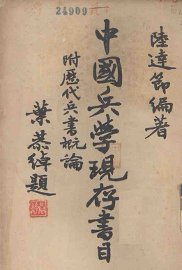 24909
陸達節編著
中國兵學現存書目
附歷代兵書概論
葉恭綽題